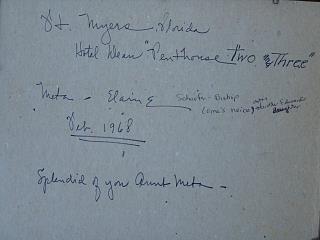 Ft. Myers, Florida
Hotel Dean "Penthouse Two & Three"
Meta - Elaine Schaefer - Bishop
(Oma's neice)
daughter
Feb. 1968
Splendid of you Aunt Meta -